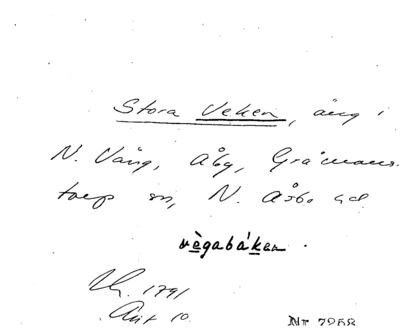 Stora Veken, äng i
N. Vång, Åby, Gråmans-
torp sn, N. Åsbo hd
vègabáken.
Lh. 1791
Akt 10.
Nr 7958